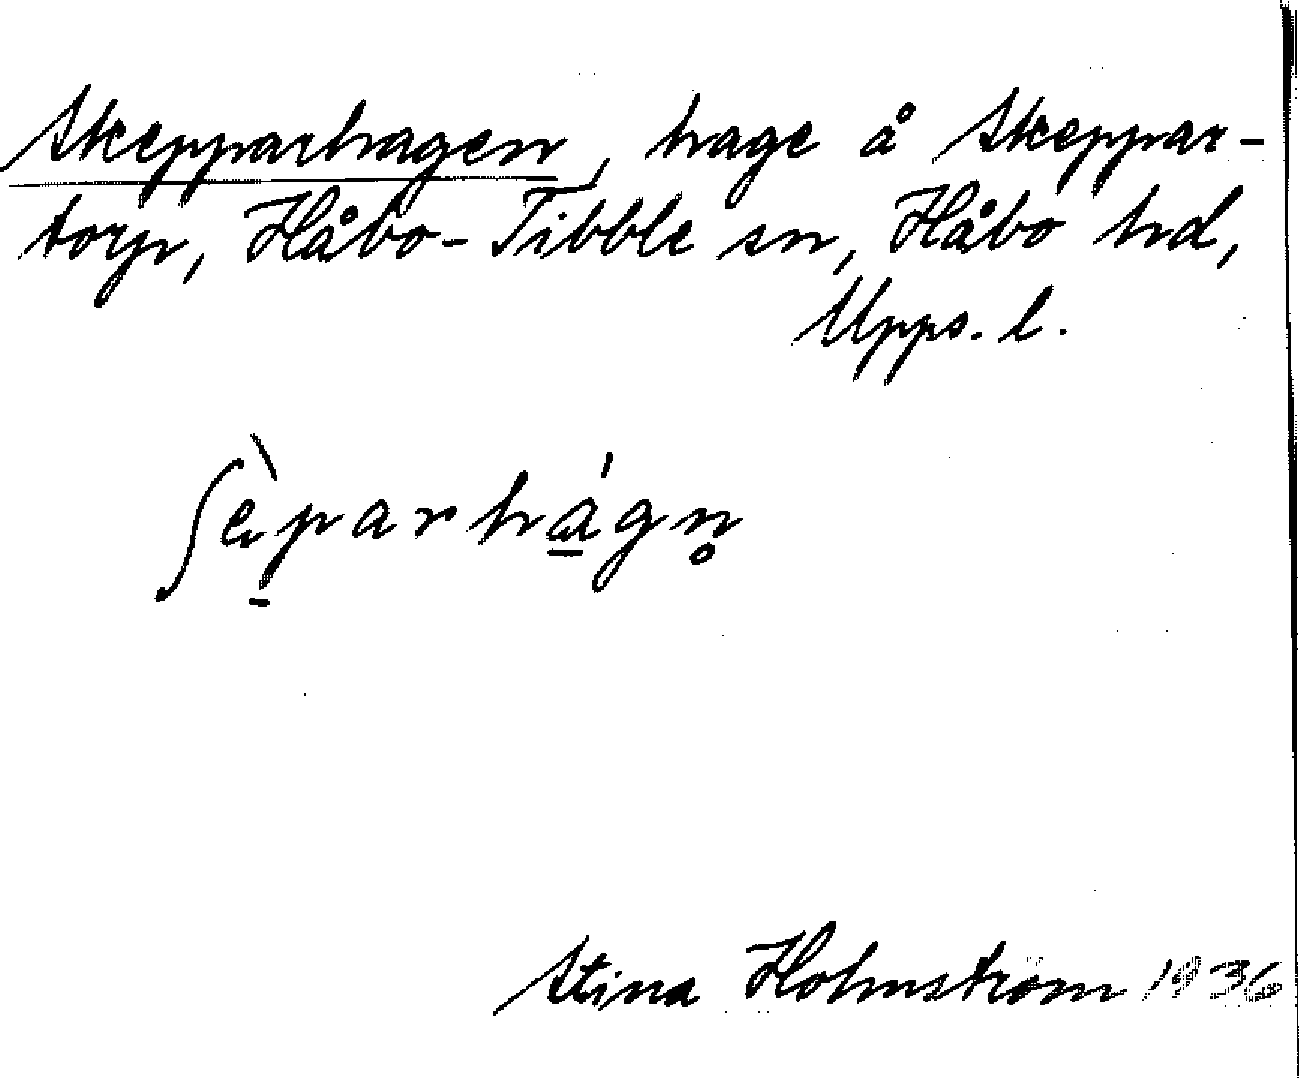 Skepparhagen, hage å Skeppar-
torp, Håbo-Tibble sn, Håbo hd,
Upps. l.
ʃὲp̱arhá̱gn̥
Stina Holmström 1936